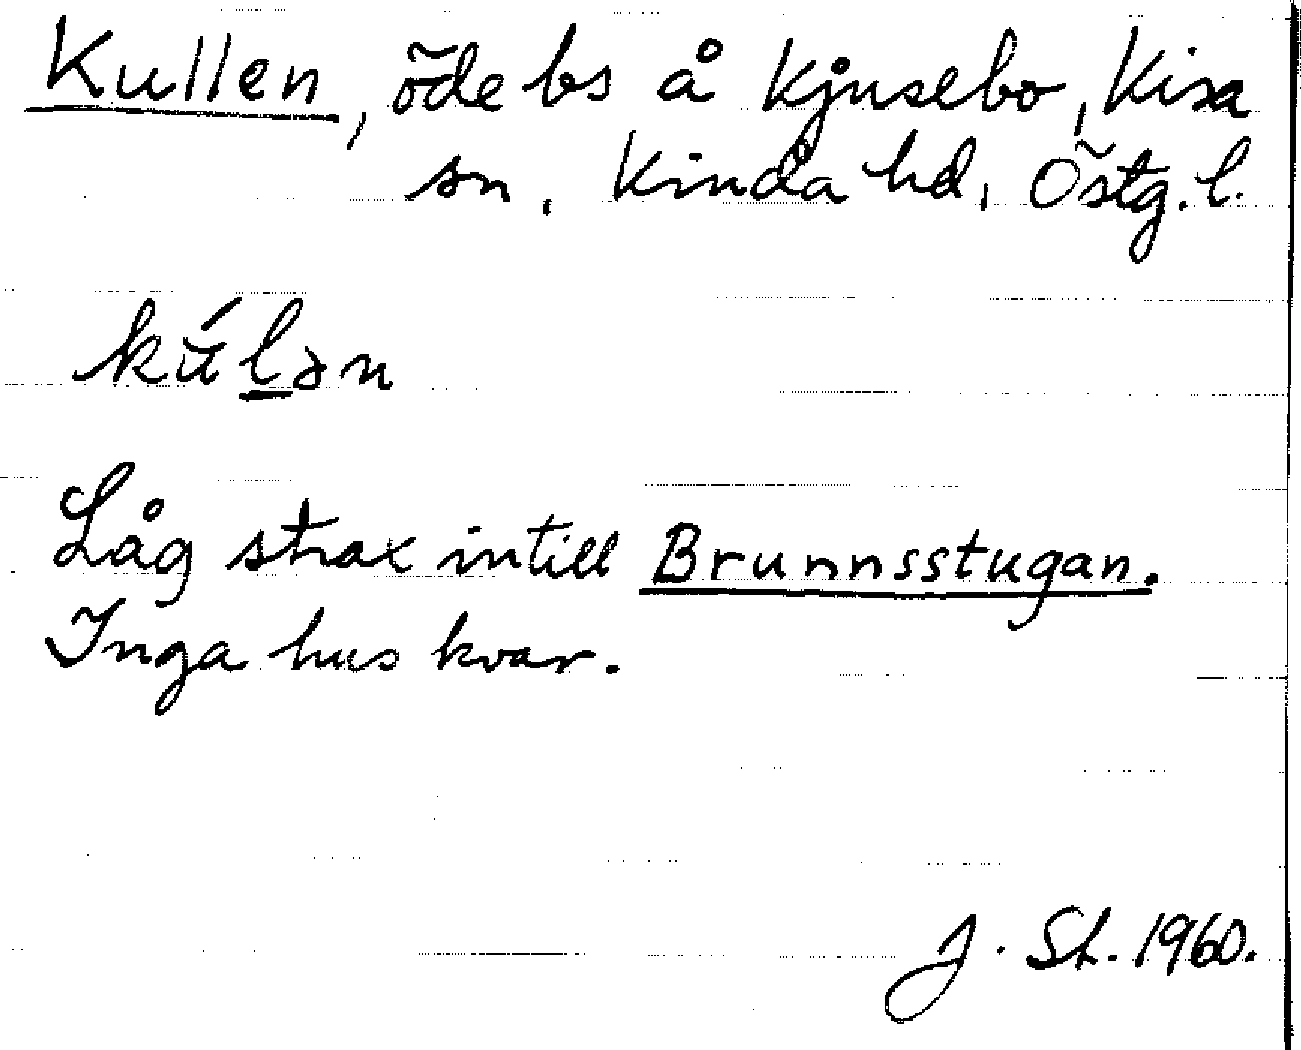 Kullen, öde bs å Kjusebo, Kisa
sn. Kinda hd, Östg. l.
kúl̲ən
Låg strax intill Brunnsstugan.
Inga hus kvar.
J. St. 1960.